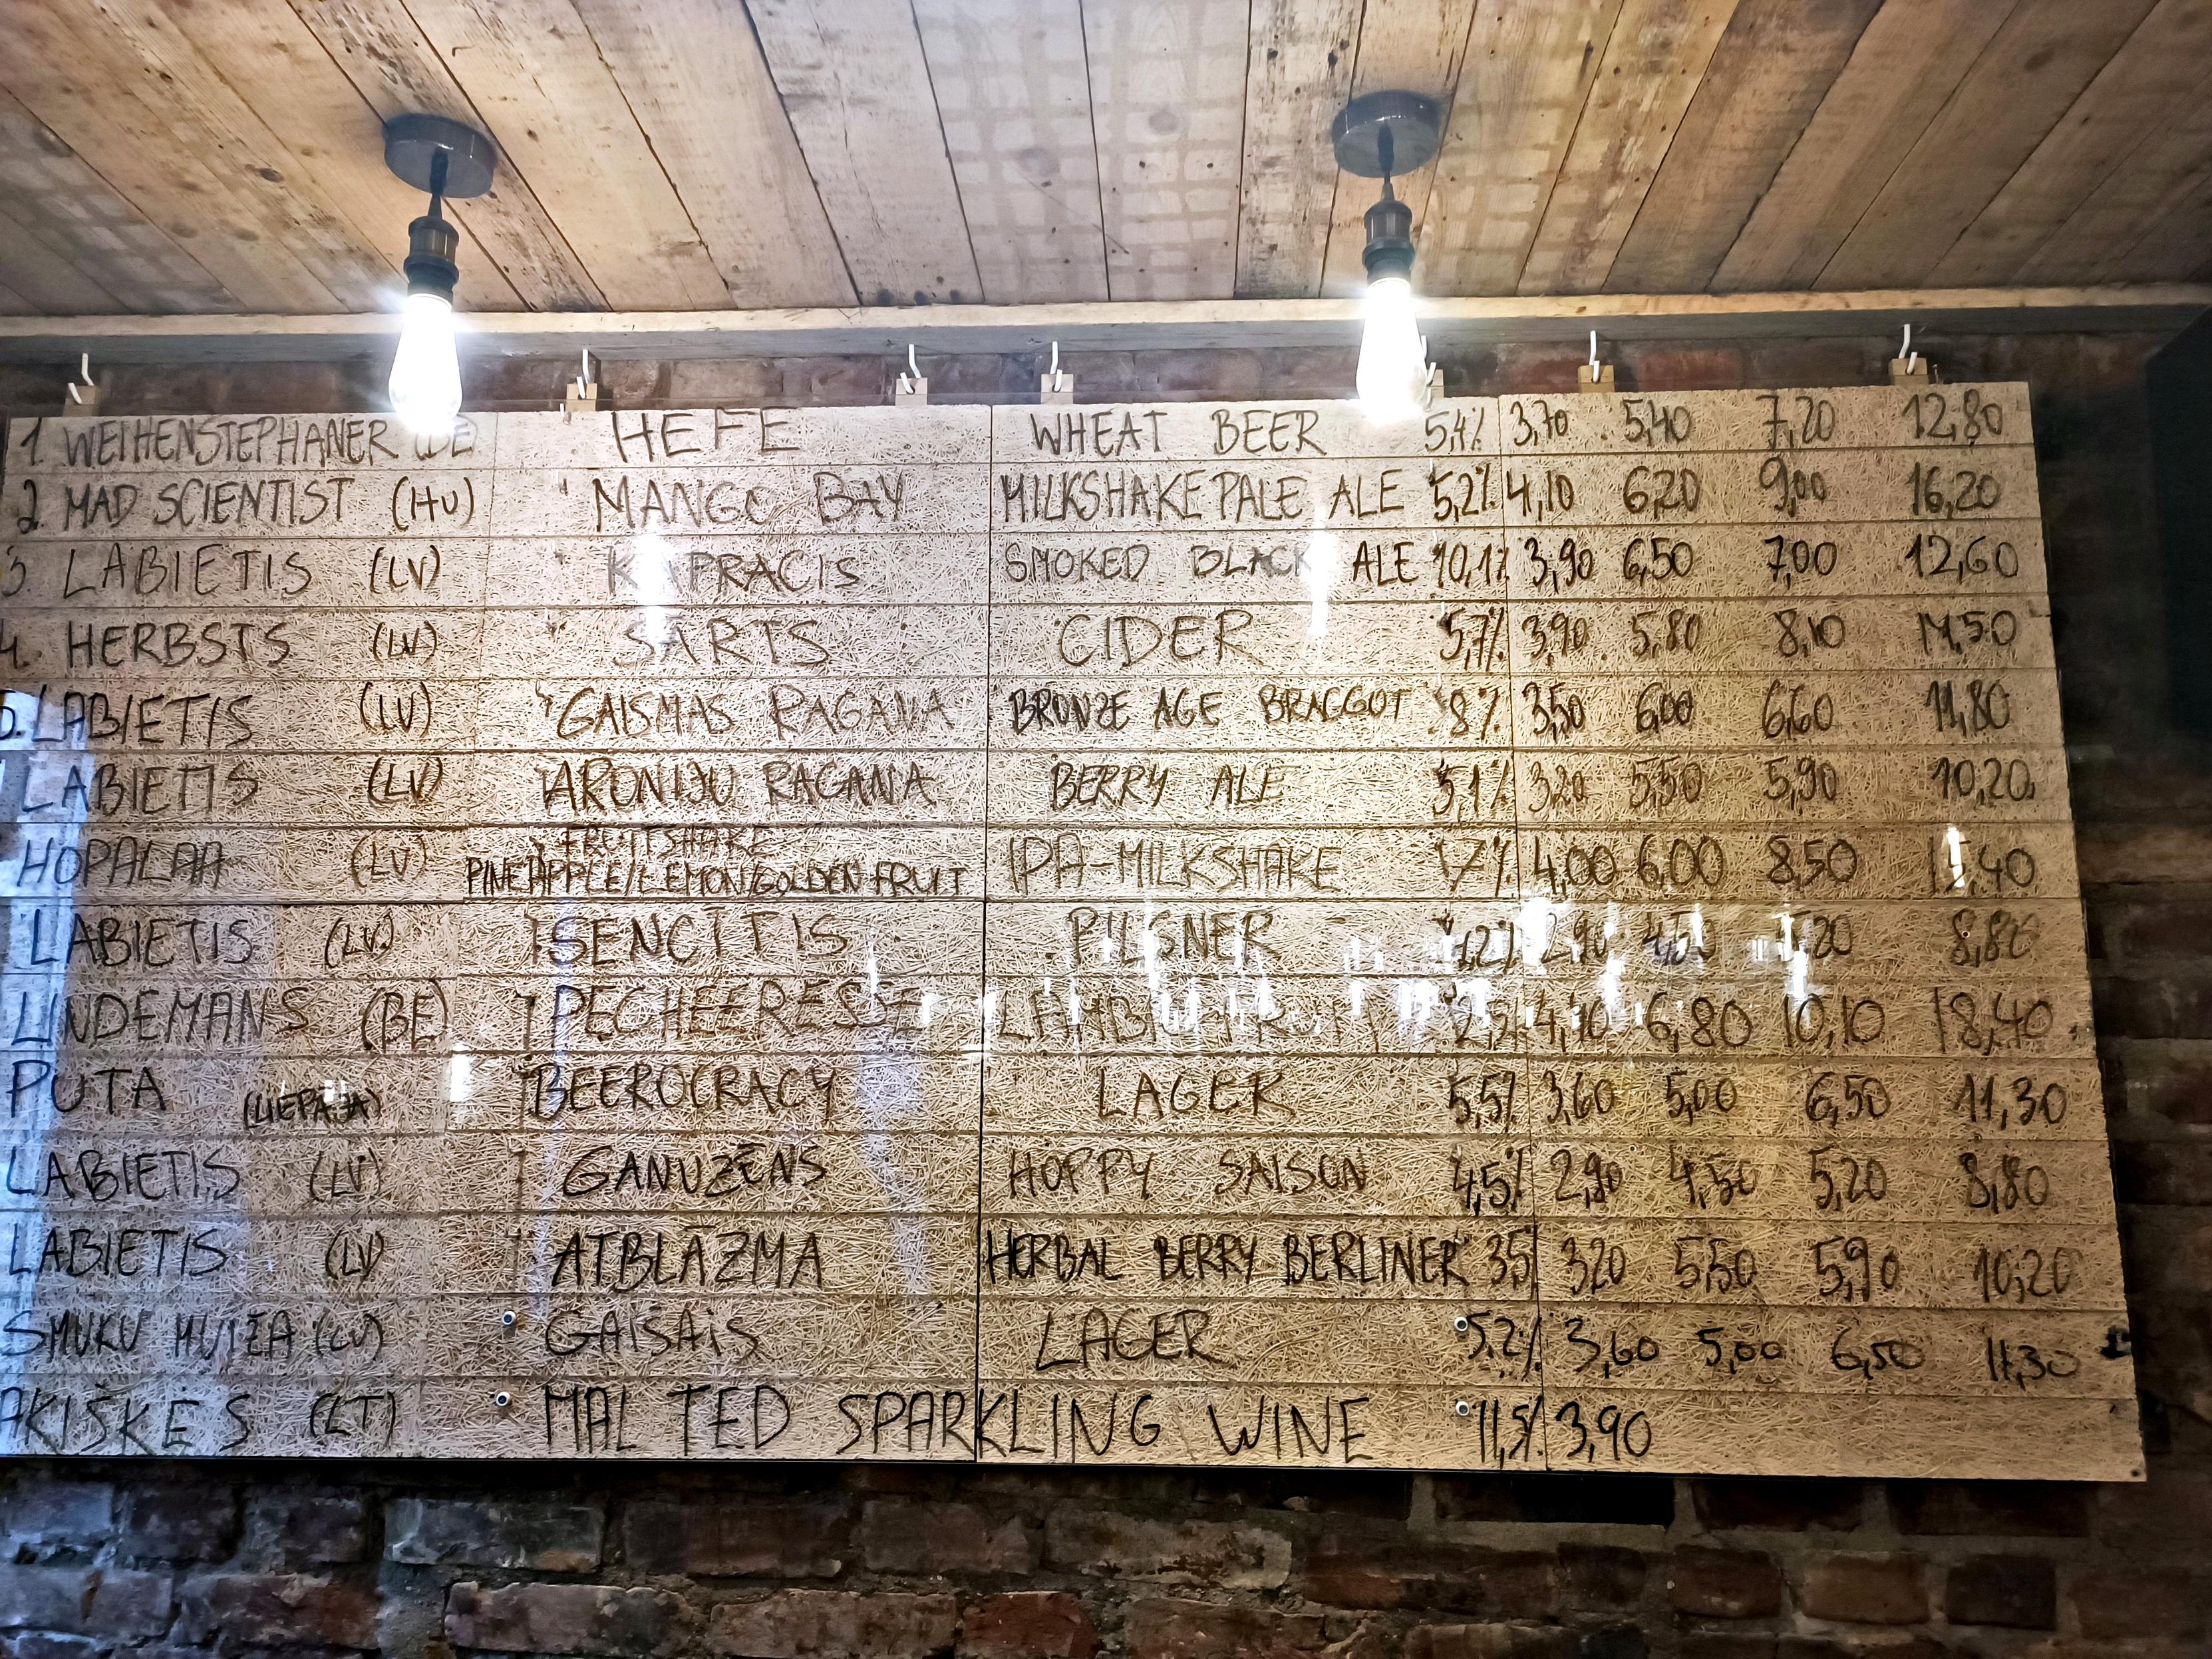 1. WEIHENSTEPHANER (DE) HEFE WHEAT BEER 5,4% 3,70 5,40 7,20 12,80
2. MAD SCIENTIST (HU) MANGO BAY MILKSHAKE PALE ALE 5,2% 4,10 6,20 9,00 16,20
3. LABIETIS (LV) KAPRACIS SMOKED BLACK ALE 10,1% 3,90 6,50 7,00 12,60
4. HERBSTS (LV) SĀRTS CIDER 5,7% 3,90 5,80 8,10 14,50
LABIETIS (LV) GAISMAS RAGANA BRONZE AGE BRAGGOT 8% 3,50 6,00 6,60 11,80
LABIETIS (LV) ARONIJU RAGANA BERRY ALE 5,1% 3,20 5,50 5,90 10,20
HOPALAA (LV) FRUITSHAKE PINEAPPLE/LEMON/GOLDEN FRUIT IPA-MILKSHAKE 7% 4,00 6,00 8,50
LABIETIS (LV) SENCĪTIS PILSNER 2,90 4,50 5,20 8,80
LINDEMANS (BE) PECHEERESSE 4,10 6,80 10,10 18,40
PUTA (LIEPAJA) BEEROCRACY LAGER 5,5% 3,60 5,00 6,50 11,30
LABIETIS (LV) GANUZĒNS HOPPY SAISON 4,5% 2,90 4,50 5,20 8,80
LABIETIS (LV) ATBLĀZMA HERBAL BERRY BERLINER 3,5 3,20 5,50 5,90 10,20
SMUKU MUIŽA (LV) GAIŠAIS LAGER 5,2% 3,60 5,00 6,50 11,30
AKIŠKĖS (LT) MALTED SPARKLING WINE 11,5% 3,90